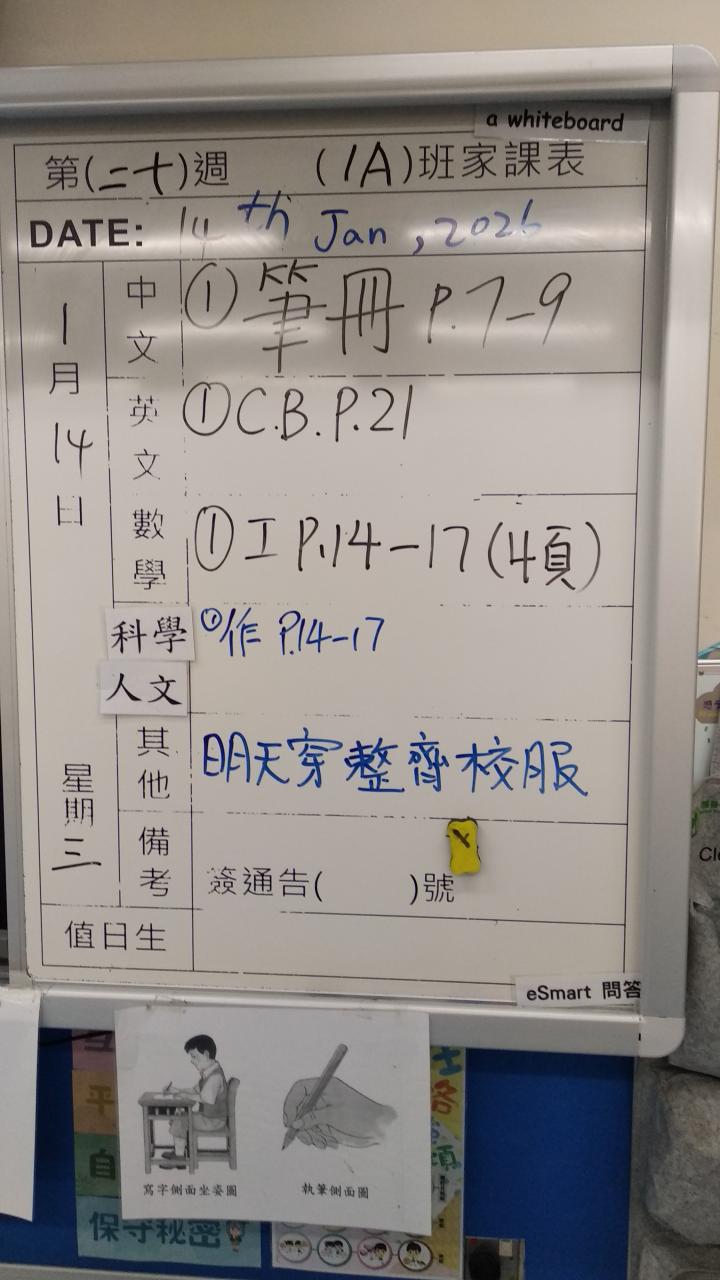 a whiteboard
第(二十)週 (1A)班家課表
DATE: 14th Jan, 2026
1月14日 星期三
中文 ① 筆冊 P.7-9
英文 ① C.B. P.21
數學 ① 工 P.14-17(4頁)
科學 ① 作 P.14-17
人文
其他 明天穿整齊校服
備考 簽通告( )號
值日生
eSmart 問答
寫字側面坐姿圖 執筆側面圖
平
自
保守秘密